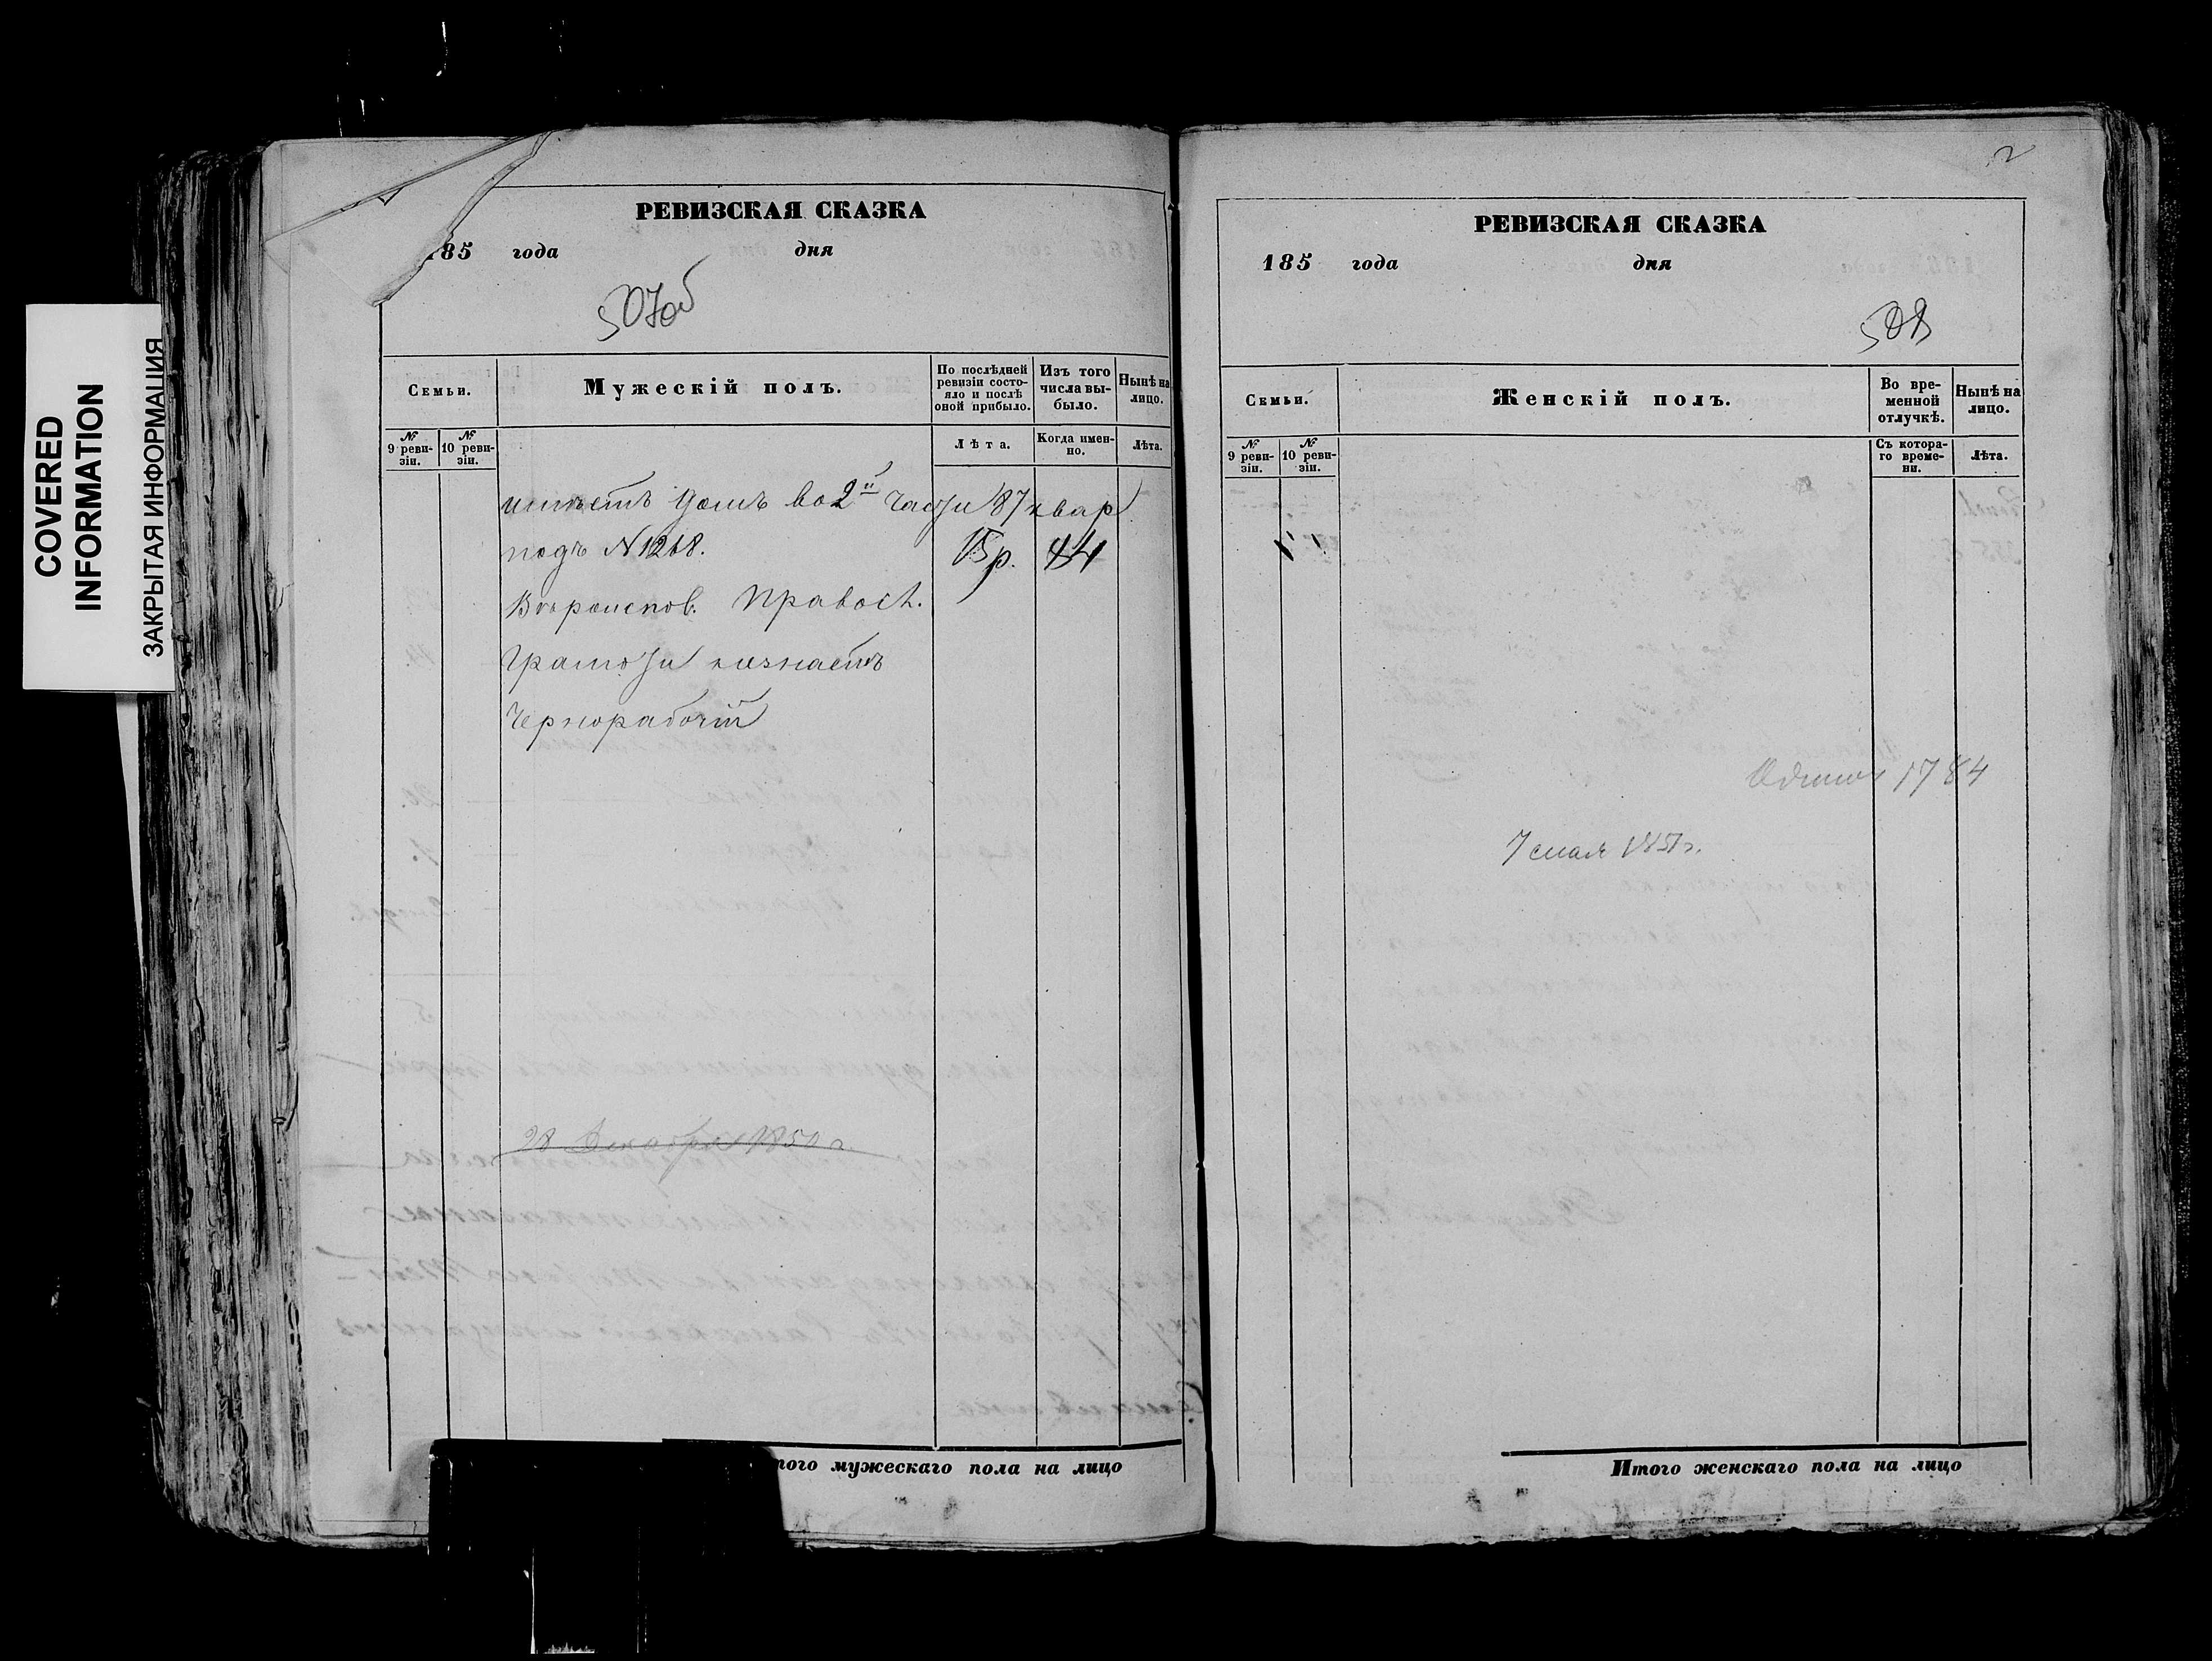 COVERED
INFORMATION
ЗАКРЫТАЯ ИНФОРМАЦИЯ
РЕВИЗСКАЯ СКАЗКА
185 года дня
507об
Семьи.
Мужескій полъ.
По послѣдней ревизіи состояло и послѣ оной прибыло.
Изъ того числа выбыло.
Нынѣ на лицо.
№ 9 ревизіи.
№ 10 ревизіи.
Лѣта.
Когда именно.
Лѣта.
имѣетъ домъ во 2й части 87 квар
подъ N 1268. 15р. 44
Вѣроиспов. Правосл.
Грамоти незнаетъ
Чернорабочій
28 Декабря 1850 г.
того мужескаго пола на лицо
2
РЕВИЗСКАЯ СКАЗКА
185 года дня
508
Семьи.
Женскій полъ.
Во временной отлучкѣ.
Нынѣ на лицо.
№ 9 ревизіи.
№ 10 ревизіи.
Съ котораго времени.
Лѣта.
1784
7 мая 1851 г.
Итого женскаго пола на лицо